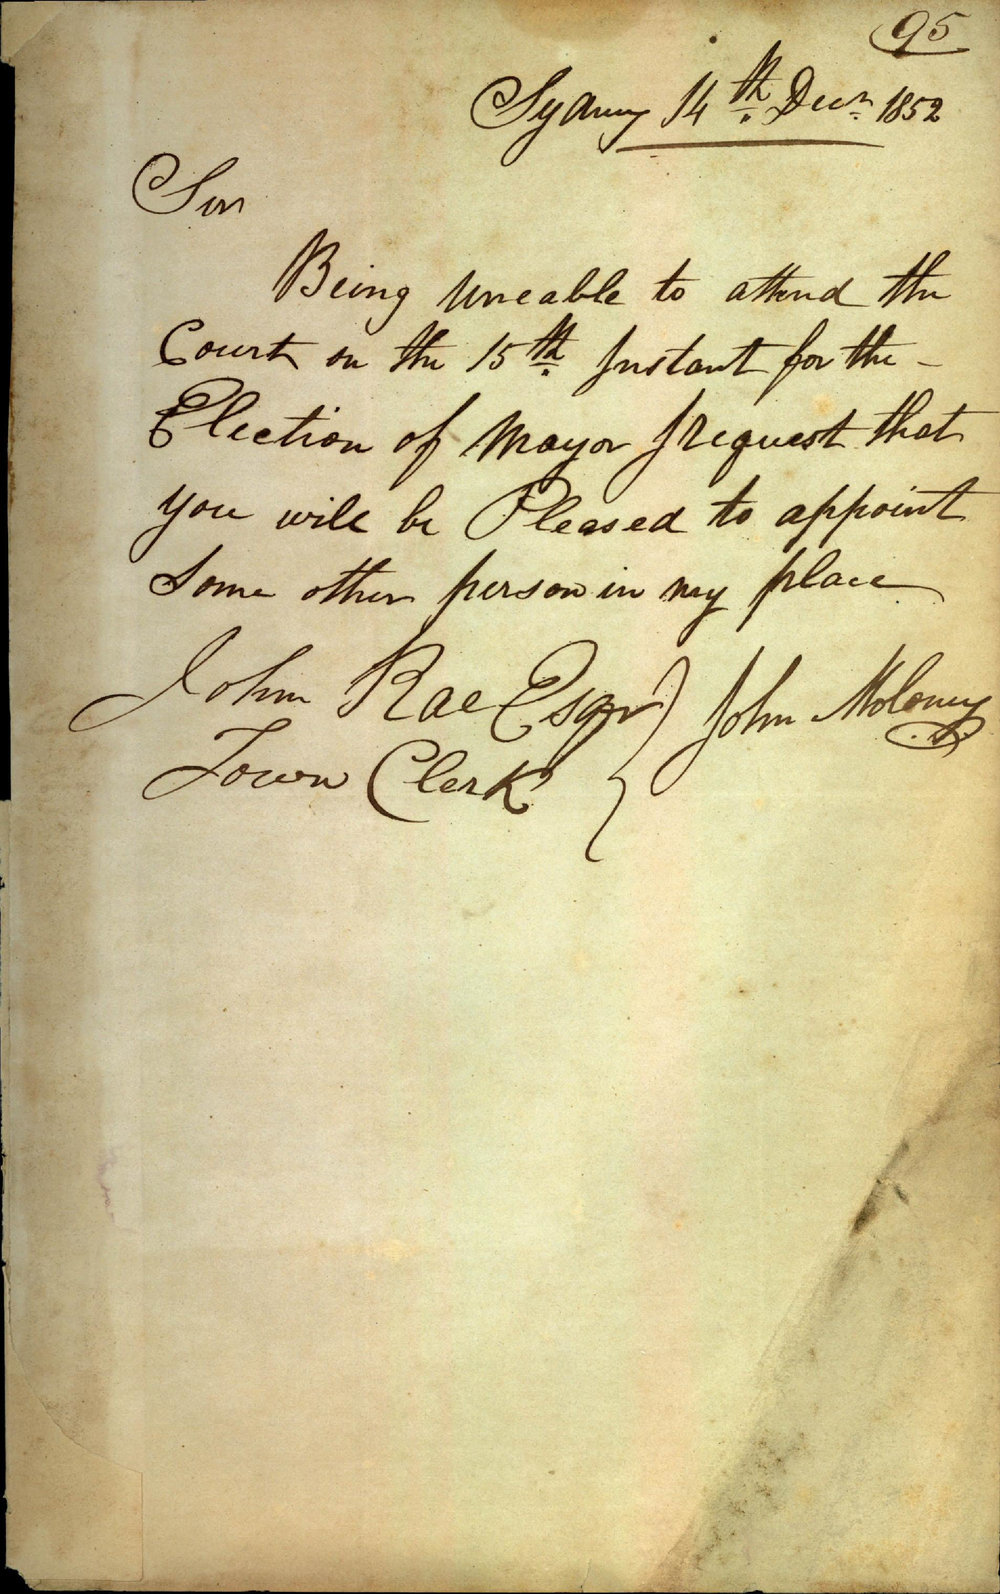 95
Sydney 14th Decr. 1852
Sir
Being uneable to attend the
Court on the 15th Instant for the -
Election of Mayor I request that
you will be Pleased to appoint
Some other person in my place
John Rae Esqr } John Moloney
Town Clerk